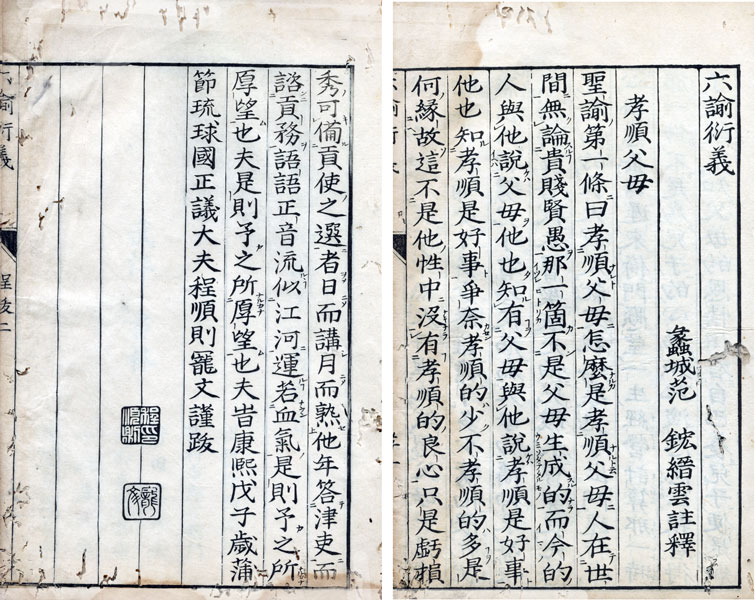 六諭衍義
蠡城范 鋐纘雲註釋
孝順父母
聖諭第一條曰孝順父母怎麼是孝順父母人在世
間無論貴賤賢愚那一箇不是父母生成的而今的
人與他說父母他也知有父母與他說孝順是好事
他也知孝順是好事爭奈孝順的少不孝順的多是
何緣故這不是他性中沒有孝順的良心只是虧損
六諭衍義
秀可備貢使之選者日而講月而熟他年答津吏而
諮貢務語語正音流似江河運若血氣是則予之所
厚望也夫是則予之所厚望也夫旹康熙戊子歲蒲
節琉球國正議大夫程順則寵文謹跋
六諭衍義
程跋二
程順則印
寵文